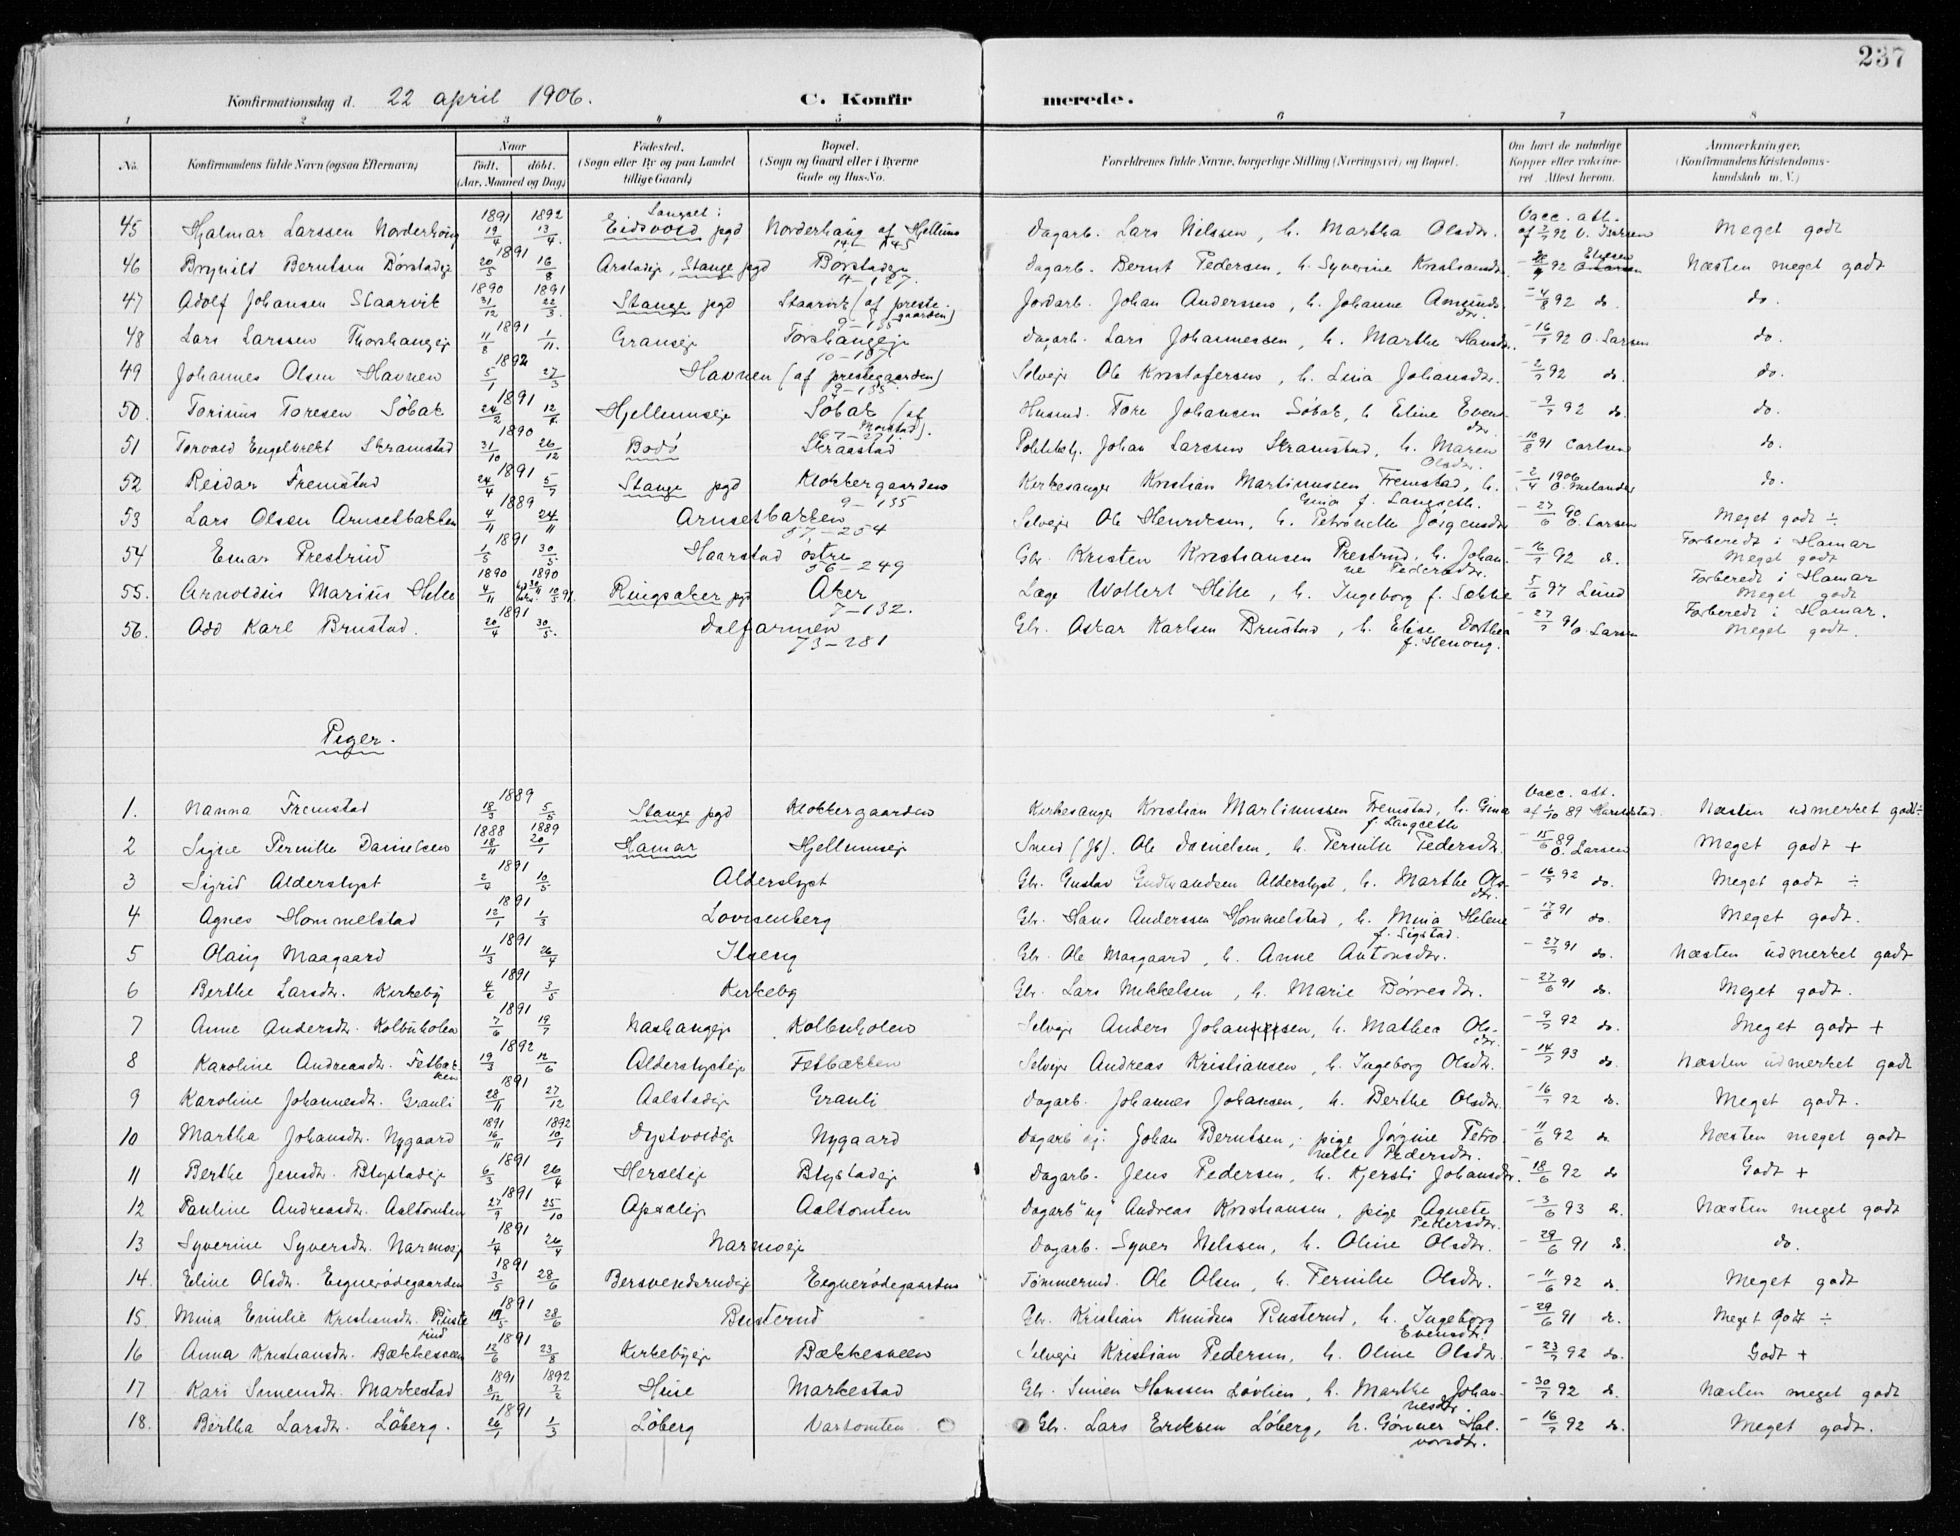 237
Konfirmationsdag d. 22 april 1906. C. Konfirmerede.
1 2 3 4 5 6 7 8
No. Konfirmandens fulde Navn (ogsaa Efternavn) Naar født. døbt. (Aar, Maaned og Dag) Fødested. (Sogn eller By og paa Landet tillige Gaard) Bopæl. (Sogn og Gaard eller i Byerne Gade og Hus-No. Forældrenes fulde Navne, borgerlige Stilling (Næringsvei) og Bopæl. Om havt de naturlige Kopper eller vaccineret Attest herom. Anmærkninger. (Konfirmandens Kristendomskundskab m. V.)
45 Hjalmar Larssen Norderhaug 1891 19/4 1892 13/4. Langset: Eidsvold pgd Norderhaug af Hjellum 146-145 Dagarb. Lars Nilssen, h. Martha Olsdr. Vacc. att. af 2/7 92 O. Larsen Meget godt
46 Brynild Berntsen Börstadeje 1891 20/5 16/8 Arstadeje, Stange pgd Borstadeje 4-127. Dagarb. Bernt Pedersen, h. Syverine Kristiansdr. 92 Næsten meget godt
47 Adolf Johansen Staarvik 1890 31/12 1891 22/3. Stange pgd Staarvik (af prestegaarden) 9-135 Jordarb. Johan Anderssen, h. Johanne Amundsdr. - 4/8 92 do. do.
48 Lars Larssen Thorshaugeje 1891 11/8 1/11. Granseje Torshaugeje Dagarb. Lars Johannessen, h. Marthe Hansdr. - 16/7 92 O. Larsen do.
49 Johannes Olsen Havnen 1892 5/1 27/3 Havnen (af prestegaarden) 9-135 Selvejer Ole Kristofersen, h. Lina Johansdr. - 2/7 92 do. do.
50. Torinus Toresen Söbak 1891 24/2 12/4 Hjellumseje Söbak (af Morstad). 67-271. Husmd. Tore Johansen Söbak, h. Eline Evensdr. - 9/7 92 do. do.
51 Torvald Engelbrekt Skramstad 1890 31/10 26/12 Bodö Skraastad Johan Larssen Skramstad, h. Maren Olsdr. - 10/8 91 Carlsen do.
52 Reidar Fremstad 1891 24/4 5/7 Stange pgd Klokkergaarden 9-135 Kirkesanger Kristian Martinussen Fremstad, h. Gina f. Langseth. - 2/4 1906 O. Melander do.
53 Lars Olsen Arnsetbakken 1889 4/11 24/11 Arnsetbakken 57-254 Selvejer Ole Henriksen, h. Petronelle Jörgensdr. - 27/6 90 O. Larsen Meget godt ÷
54 Einar Prestrud 1891 1/5 30/5 Haarstad östre 56-249 Gbr. Kristen Kristiansen Prestrud, h. Johanne Pedersdr. - 16/7 92 do. Forberedt i Hamar Meget godt
55. Arnoldus Marius Hille 1890 4/11 1890 Ringsaker pgd Aker 7-132. Læge Wollert Hille, h. Ingeborg f. 5/6 97 Lund Forberedt i Hamar Meget godt
56. Odd Karl Brustad. 1891 20/4 30/5. Dalfarmen 73-281 Gbr. Oskar Karlsen Brustad, h. Elise Dorthea f. Henong. - 27/7 91 O. Larsen Forberedt i Hamar. Meget godt.
Piger.
1. Nanna Fremstad 1889 18/3 5/5 Stange pgd Klokkergaarden Kirkesanger Kristian Martinussen Fremstad, h. Gina f. Langseth Vacc. att. af 1/10 89 Haraldstad. Næsten udmerket godt ÷
2 Signe Pernille Danielsen 1888 18/11 1889 20/1 Hamar Hjellumseje Smed (Jb). Ole Danielsen, h. Pernille Pedersdr. - 15/6 89 O. Larsen Meget godt +
3 Sigrid Alderslyst 1891 2/4 10/5 Alderslyst Gbr. Gustav Gudbrandsen Alderslyst, h. Marthe Olsdr. - 16/7 92 do. Meget godt ÷
4 Agnes Hommelstad 1891 12/1 1/3 Lovisenberg Gbr. Hans Anderssen Hommelstad, h. Mina Helene f. Sigstad. - 17/8 91 do. Meget godt.
5 Olaug Maagaard 1891 11/3 26/4 Ilseng Gbr. Ole Maagaard, h. Anne Antonsdr. - 27/7 91 do. Næsten udmerket godt
6 Berthe Larsdr. Kirkeby 1891 4/2 3/5 Kirkeby Gbr. Lars Mikkelsen, h. Marie Börresdr. - 27/6 91 do. Meget godt.
7 Anne Andersdr. Kolbuholen 1891 7/6 19/7 Nashaugeje Kolbuholen Selvejer Anders Johannessen, h. Mathea Olsdr. - 9/7 92 do. Meget godt +
8 Karoline Andreasdr. Fetbakken 1892 19/3 12/6 Alderslysteje Fetbakken Selvejer Andreas Kristiansen, h. Ingeborg Olsdr. - 14/7 93 do. Næsten udmerket godt
9 Karoline Johannesdr. Granli 1891 28/11 27/12 Aalstadeje Granli Dagarb. Johannes Johansen, h. Berthe Olsdr. - 16/7 92 do. Meget godt.
10 Martha Johansdr. Nygaard 1891 16/11 1892 10/1 Dystvoldeje Nygaard Dagarb. ug. Johan Berntsen, pige Jörgine Petronelle Pedersdr. - 11/6 92 do. Næsten meget godt
11 Berthe Jensdr. Blystadeje 1891 6/3 26/4 Herseteje Blystadeje Dagarb. Jens Pedersen, h. Kjersti Johansdr. - 18/6 92 do. Godt +
12 Pauline Andreasdr. Aaltomten 1891 27/9 25/10 Apaleje Aaltomten Dagarb "ug" Andreas Kristiansen, pige Agnete Pedersdr. - 3/6 93 do. Næsten meget godt
13 Syverine Syversdr. Narmoeje 1891 1/4 26/4 Narmoeje Dagarb. Syver Nilssen, h. Oline Olsdr. - 29/6 91 do. do.
14. Eline Olsdr. Egneródegaarden 1891 3/5 28/6 Bersvendsrudeje Egneródegaarden Tömmermd. Ole Olsen, h. Pernille Olsdr. - 11/6 92 do. Meget godt
15. Mina Emilie Kristiansdr. Pusterud 1891 19/5 28/6 Pusterud Gbr. Kristian Knudsen Pusterud, h. Ingeborg Evensdr. - 29/6 91 do. Meget godt ÷
16 Anna Kristiansdr. Bækkesveen 1891 12/6 23/8 Kirkebyeje Bækkesveen Selvejer Kristian Pedersen, h. Oline Olsdr. - 23/7 92 do. Godt +
17 Kari Simensdr. Markestad 1891 3/12 1892 7/2 Heie Markestad Gbr. Simen Hanssen Lövlien, h. Marthe Johannesdr. - 30/7 92 do. Næsten meget godt
18. Bertha Larsdr. Löberg. 1891 26/1 1/3 Löberg Vartomten Gbr. Lars Eriksen Löberg, h. Gönner Halvorsdr. - 16/7 92 do. Meget godt.